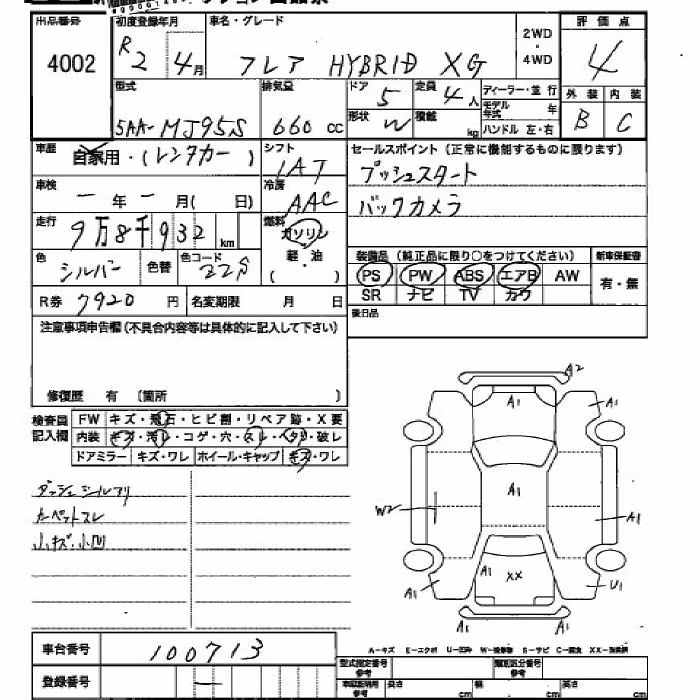 出品番号 初度登録年月 車名・グレード 2WD・4WD 評価点
4002 R2 4月 フレア HYBRID XG 4
型式 排気量 ドア 5 定員 4人 ディーラー・並行 外装 内装
モデル年式 年
5AA-MJ95S 660cc 形状 W 積載 kg ハンドル 左・右 B C
車歴 自家用・(レンタカー) シフト IAT セールスポイント(正常に機能するものに限ります)
プッシュスタート
車検 ー年ー月(日) 冷房 AAC バックカメラ
走行 9万8千932km 燃料 ガソリン 軽・油 ( )
色 シルバー 色替 色コード 装備品(純正品に限り○をつけてください) 新車保証書
PS PW ABS エアB AW 有・無
R券 7920円 名変期限 月 日 SR ナビ TV カワ
注意事項申告欄(不具合内容等は具体的に記入して下さい) 後日品
修復歴 有 〔箇所 〕
検査員記入欄 FW キズ・飛石・ヒビ割・リペア跡・X要
内装 キズ・汚レ・コゲ・穴・スレ・ヘタリ・破レ
ドアミラー キズ・ワレ ホイール・キャップ キズ・ワレ
A2
A1 A1
ダッシュシルアリ
カーペットスレ
小キズ・小凹
W2 A1 A1
A1 A1 XX U1
A1
車台番号 100713
A-キズ E-エクボ U-凹み S-サビ C-腐食
登録番号 ー 型式指定番号 類別区分番号
長さ cm 幅 cm 高さ cm